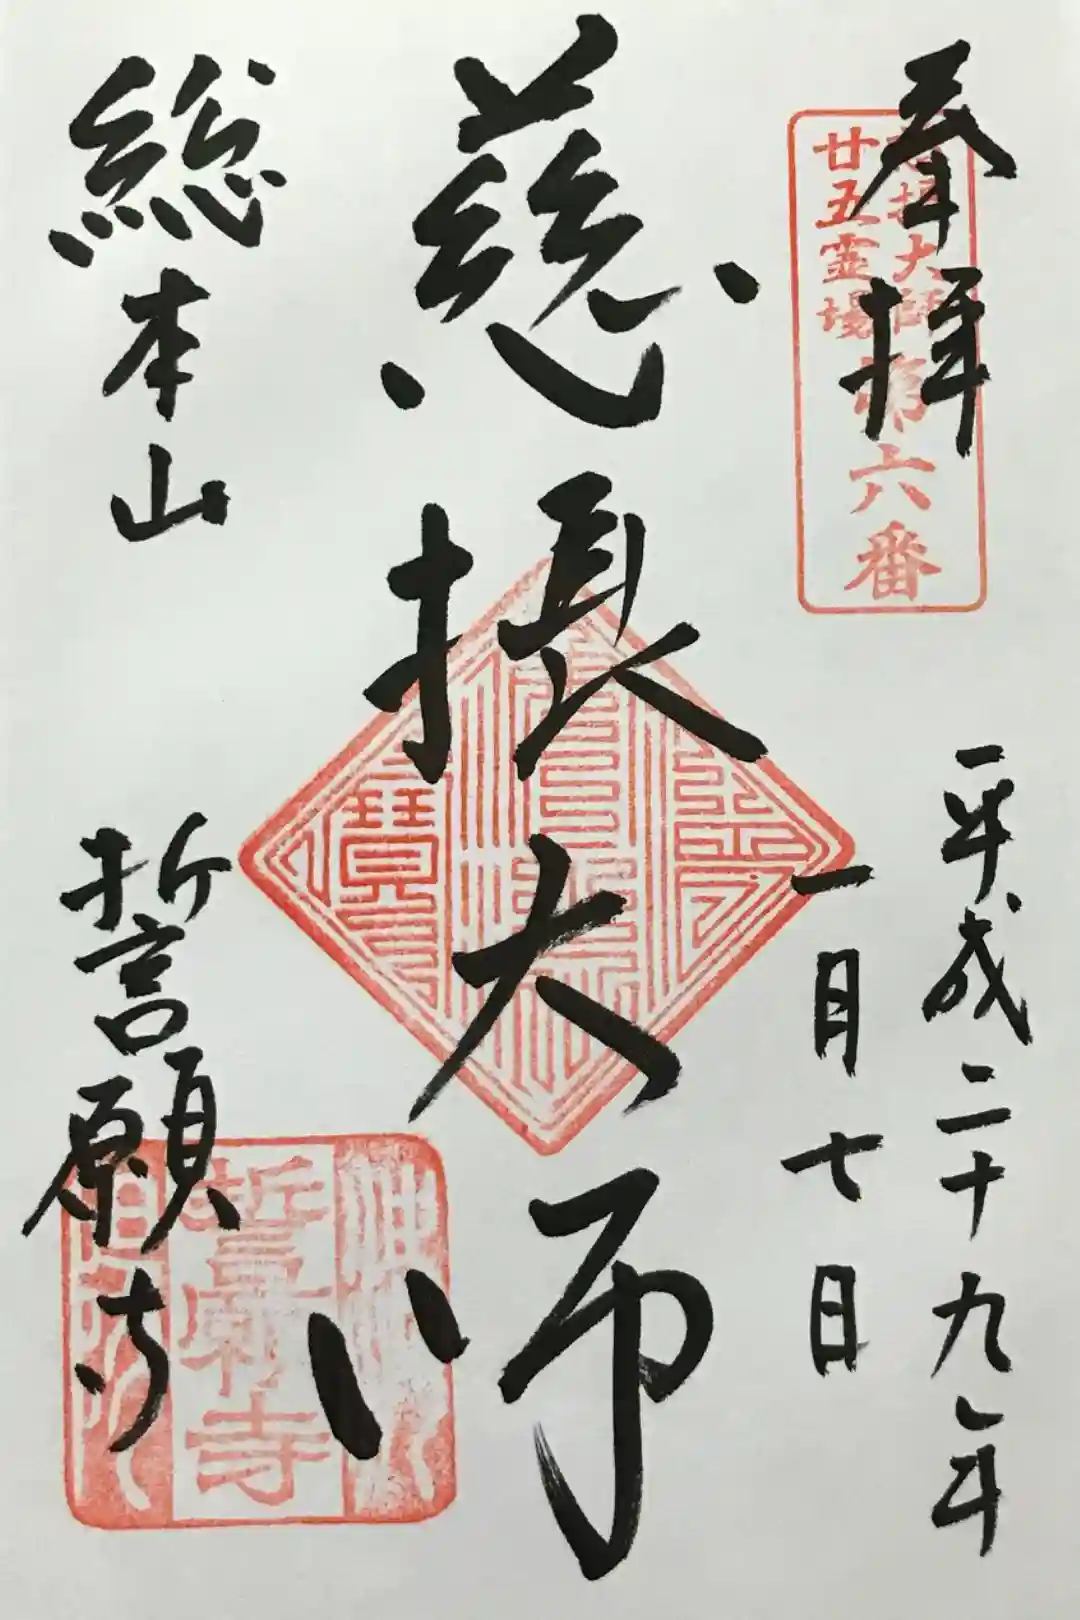 奉拝
慈摂大師
廿五霊場
第六番
平成二十九年
一月七日
慈摂大師
総本山
誓願寺
誓願寺